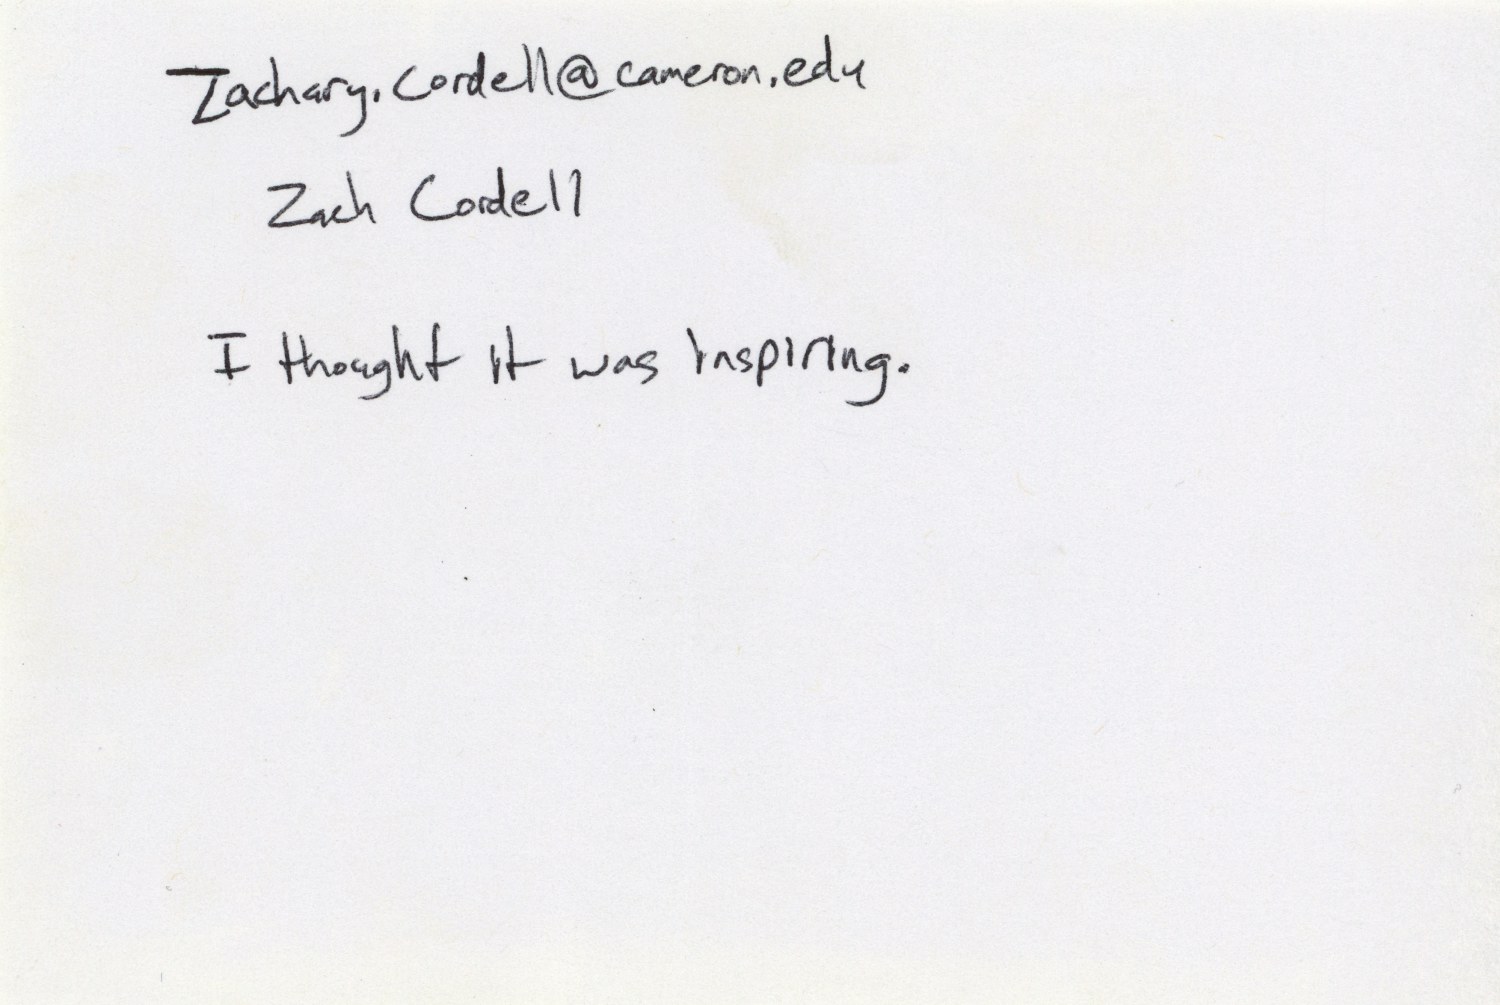 Zachary.Cordell@cameron.edu
Zach Cordell
I thought it was inspiring.